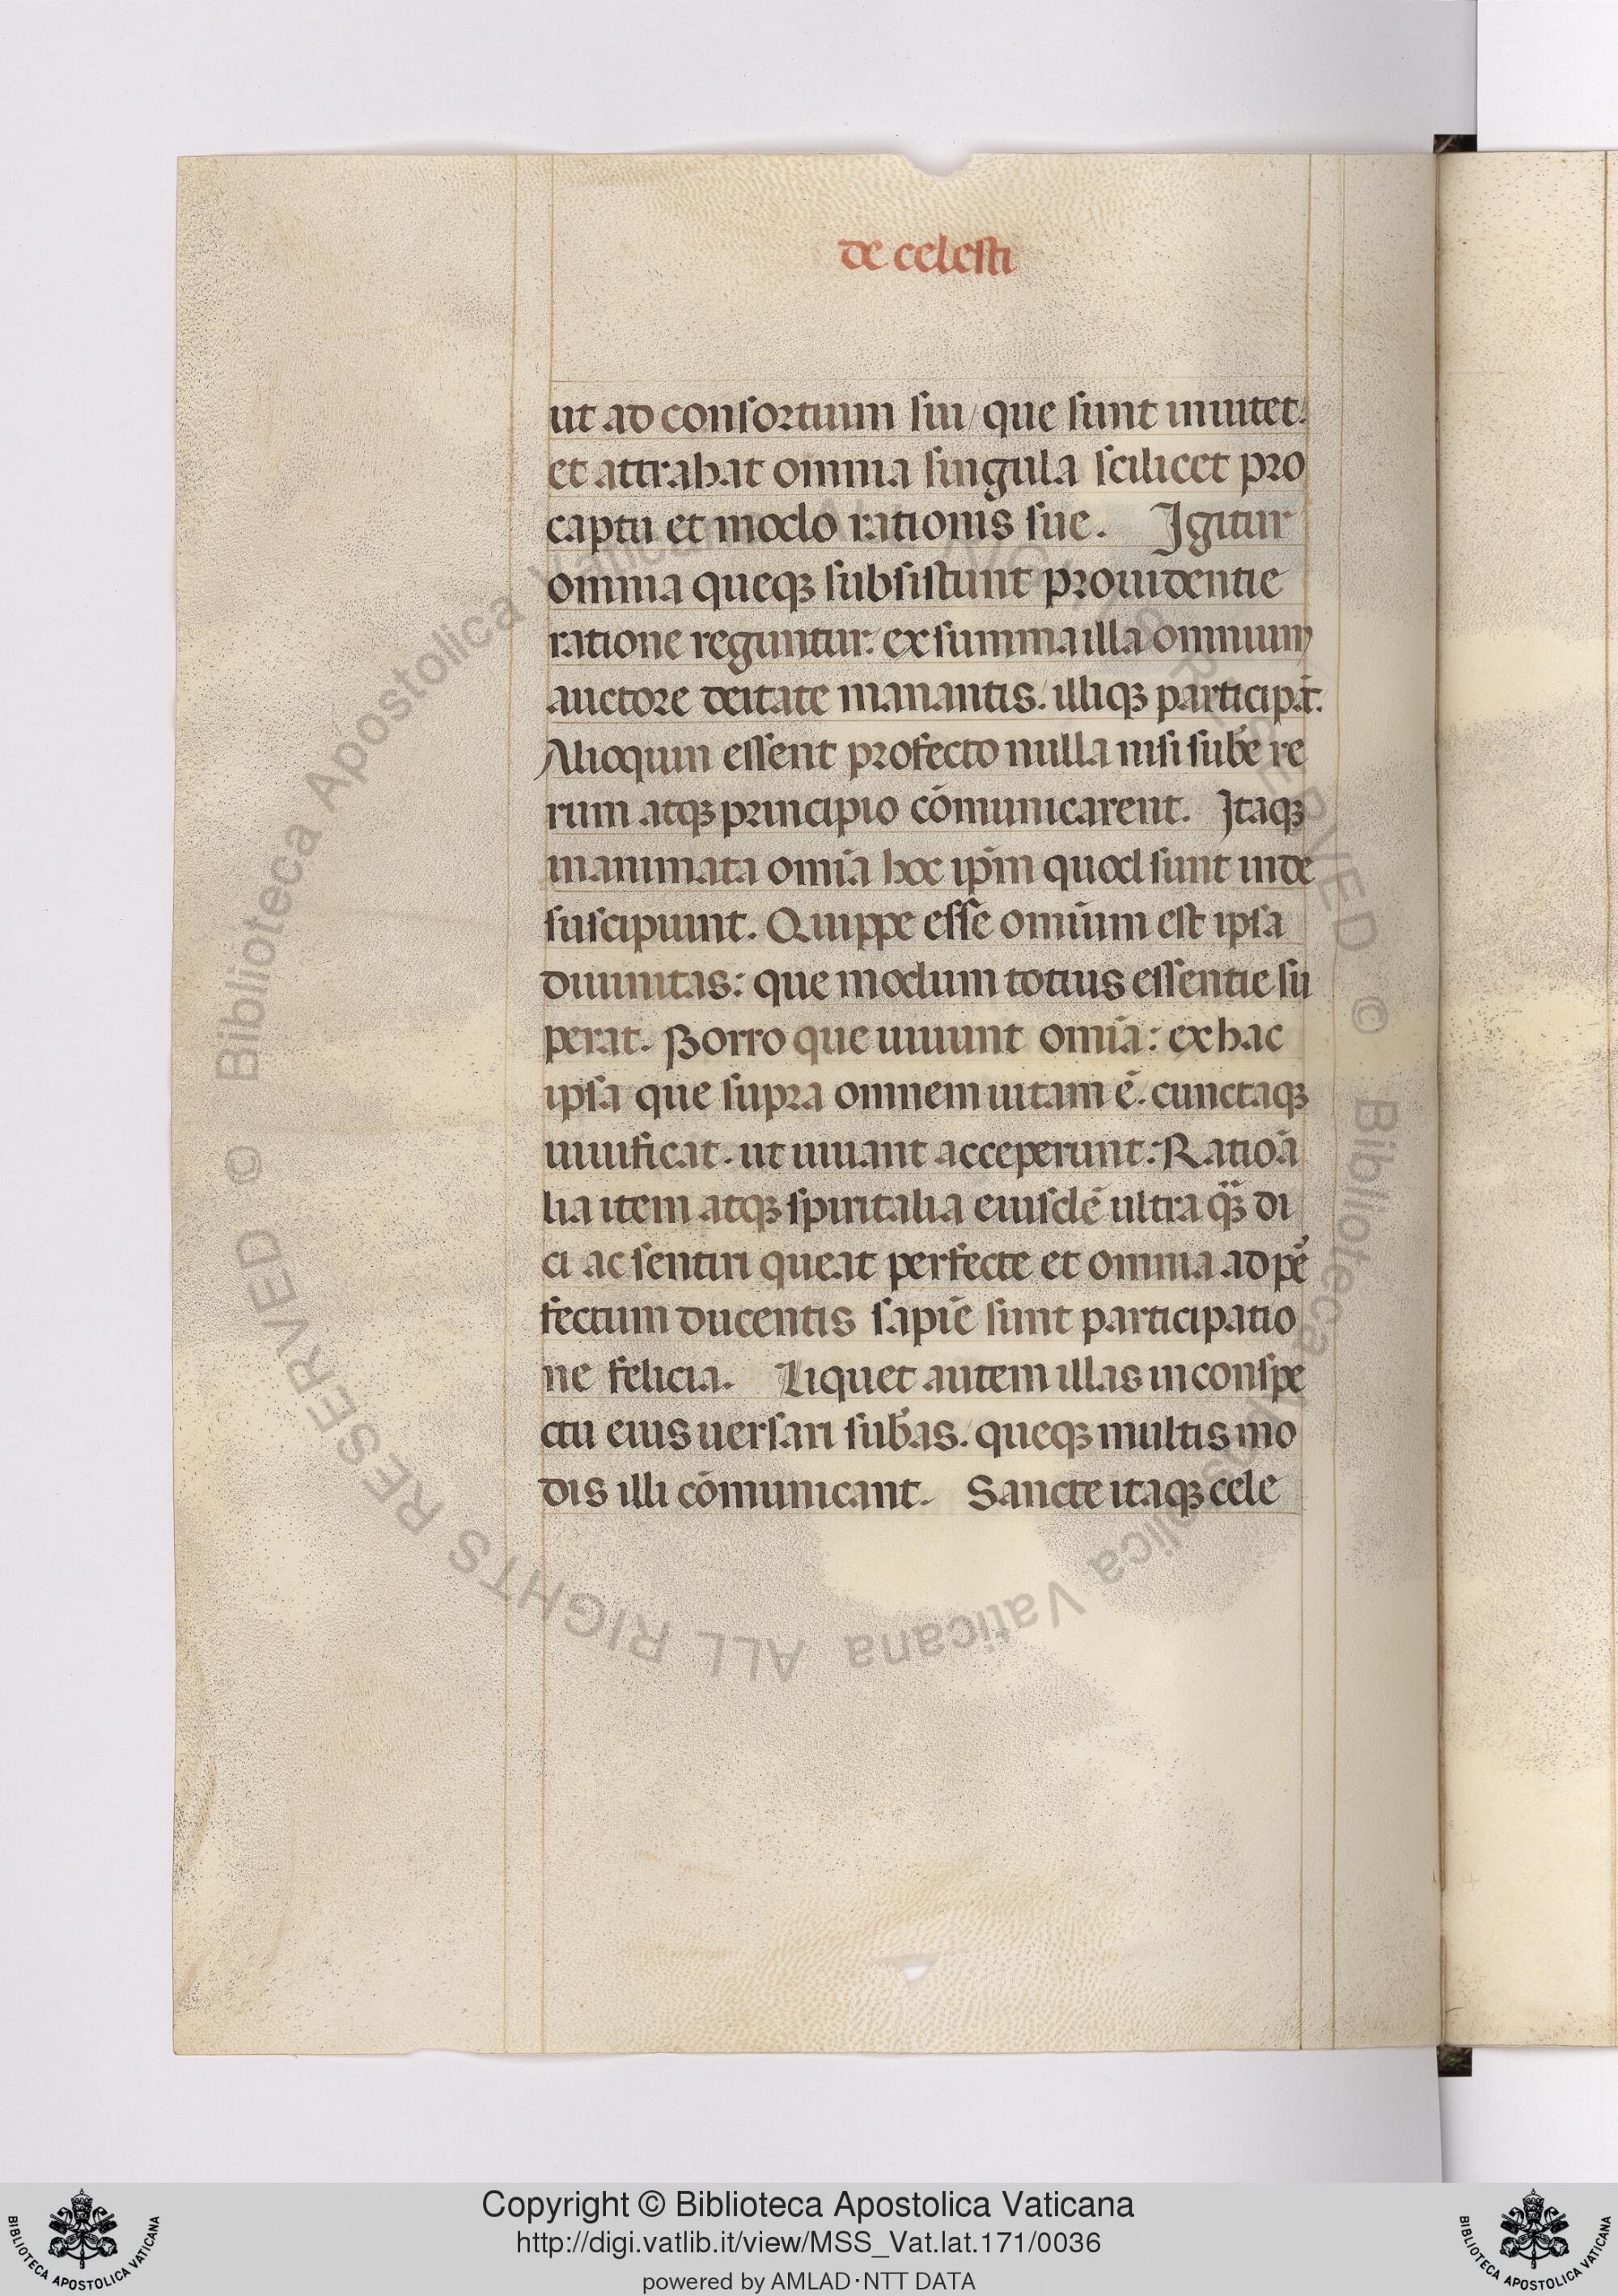 de celesti
ut ad consortium sui / que sunt inuitet.
et attrahat omnia singula scilicet pro
captu et modo rationis sue. Igitur
omnia queqꝫ subsistunt prouidentie
ratione reguntur: ex summa illa omnium
auctore deitate manantis. illiqꝫ participāt.
Alioquin essent profecto nulla nisi sub̄e re
rum atqꝫ principio cōmunicarent. Itaqꝫ
inanimata omīa hoc ip̄m quod sunt inde
suscipiunt. Quippe esse omīum est ipsa
diuinitas: que modum totius essentie su
perat. Porro que uiuunt omīa: ex hac
ipsa que supra omnem uitam ē. cunctaqꝫ
uiuificat. ut uiuant acceperunt: Ratioā
lia item atqꝫ spiritalia eiusdē ultra qꝫ̄ di
ci ac sentiri queat perfecte et omnia ad pe᷒
fectum ducentis sapiē sunt participatio
ne felicia. Liquet autem illas in conspe
ctu eius uersari sub̄as. queqꝫ multis mo
dis illi cōmunicant. Sancte itaqꝫ cele
Copyright © Biblioteca Apostolica Vaticana
http://digi.vatlib.it/view/MSS_Vat.lat.171/0036
powered by AMLAD·NTT DATA
BIBLIOTECA APOSTOLICA VATICANA
BIBLIOTECA APOSTOLICA VATICANA
© Biblioteca Apostolica Vaticana ALL RIGHTS RESERVED © Biblioteca Apostolica Vaticana ALL RIGHTS RESERVED